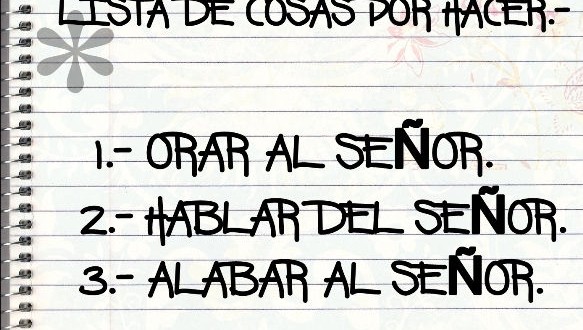 LISTA DE COSAS POR HACER.-
1.- ORAR AL SEÑOR.
2.- HABLAR DEL SEÑOR.
3.- ALABAR AL SEÑOR.